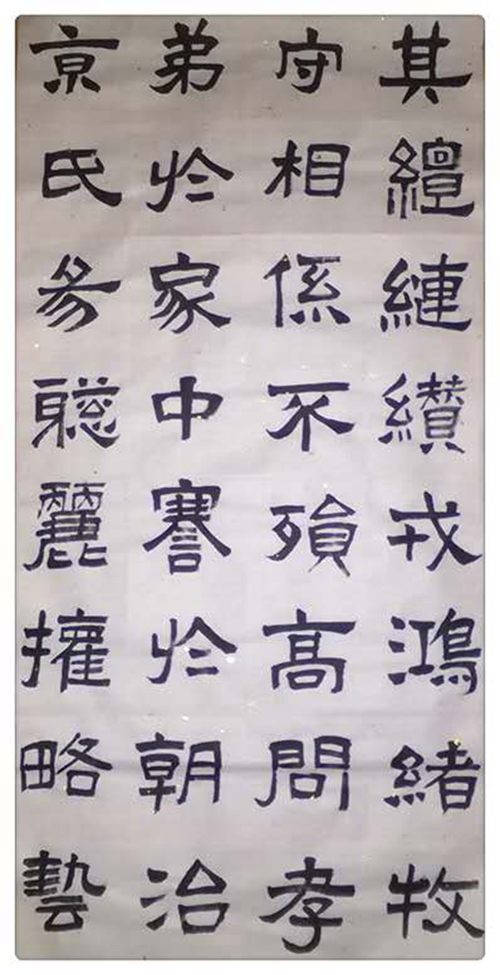 其繵縺纘戎鴻緒牧
守相係不殞高問孝
弟於家中謇於朝治
京氏易聰麗權略藝